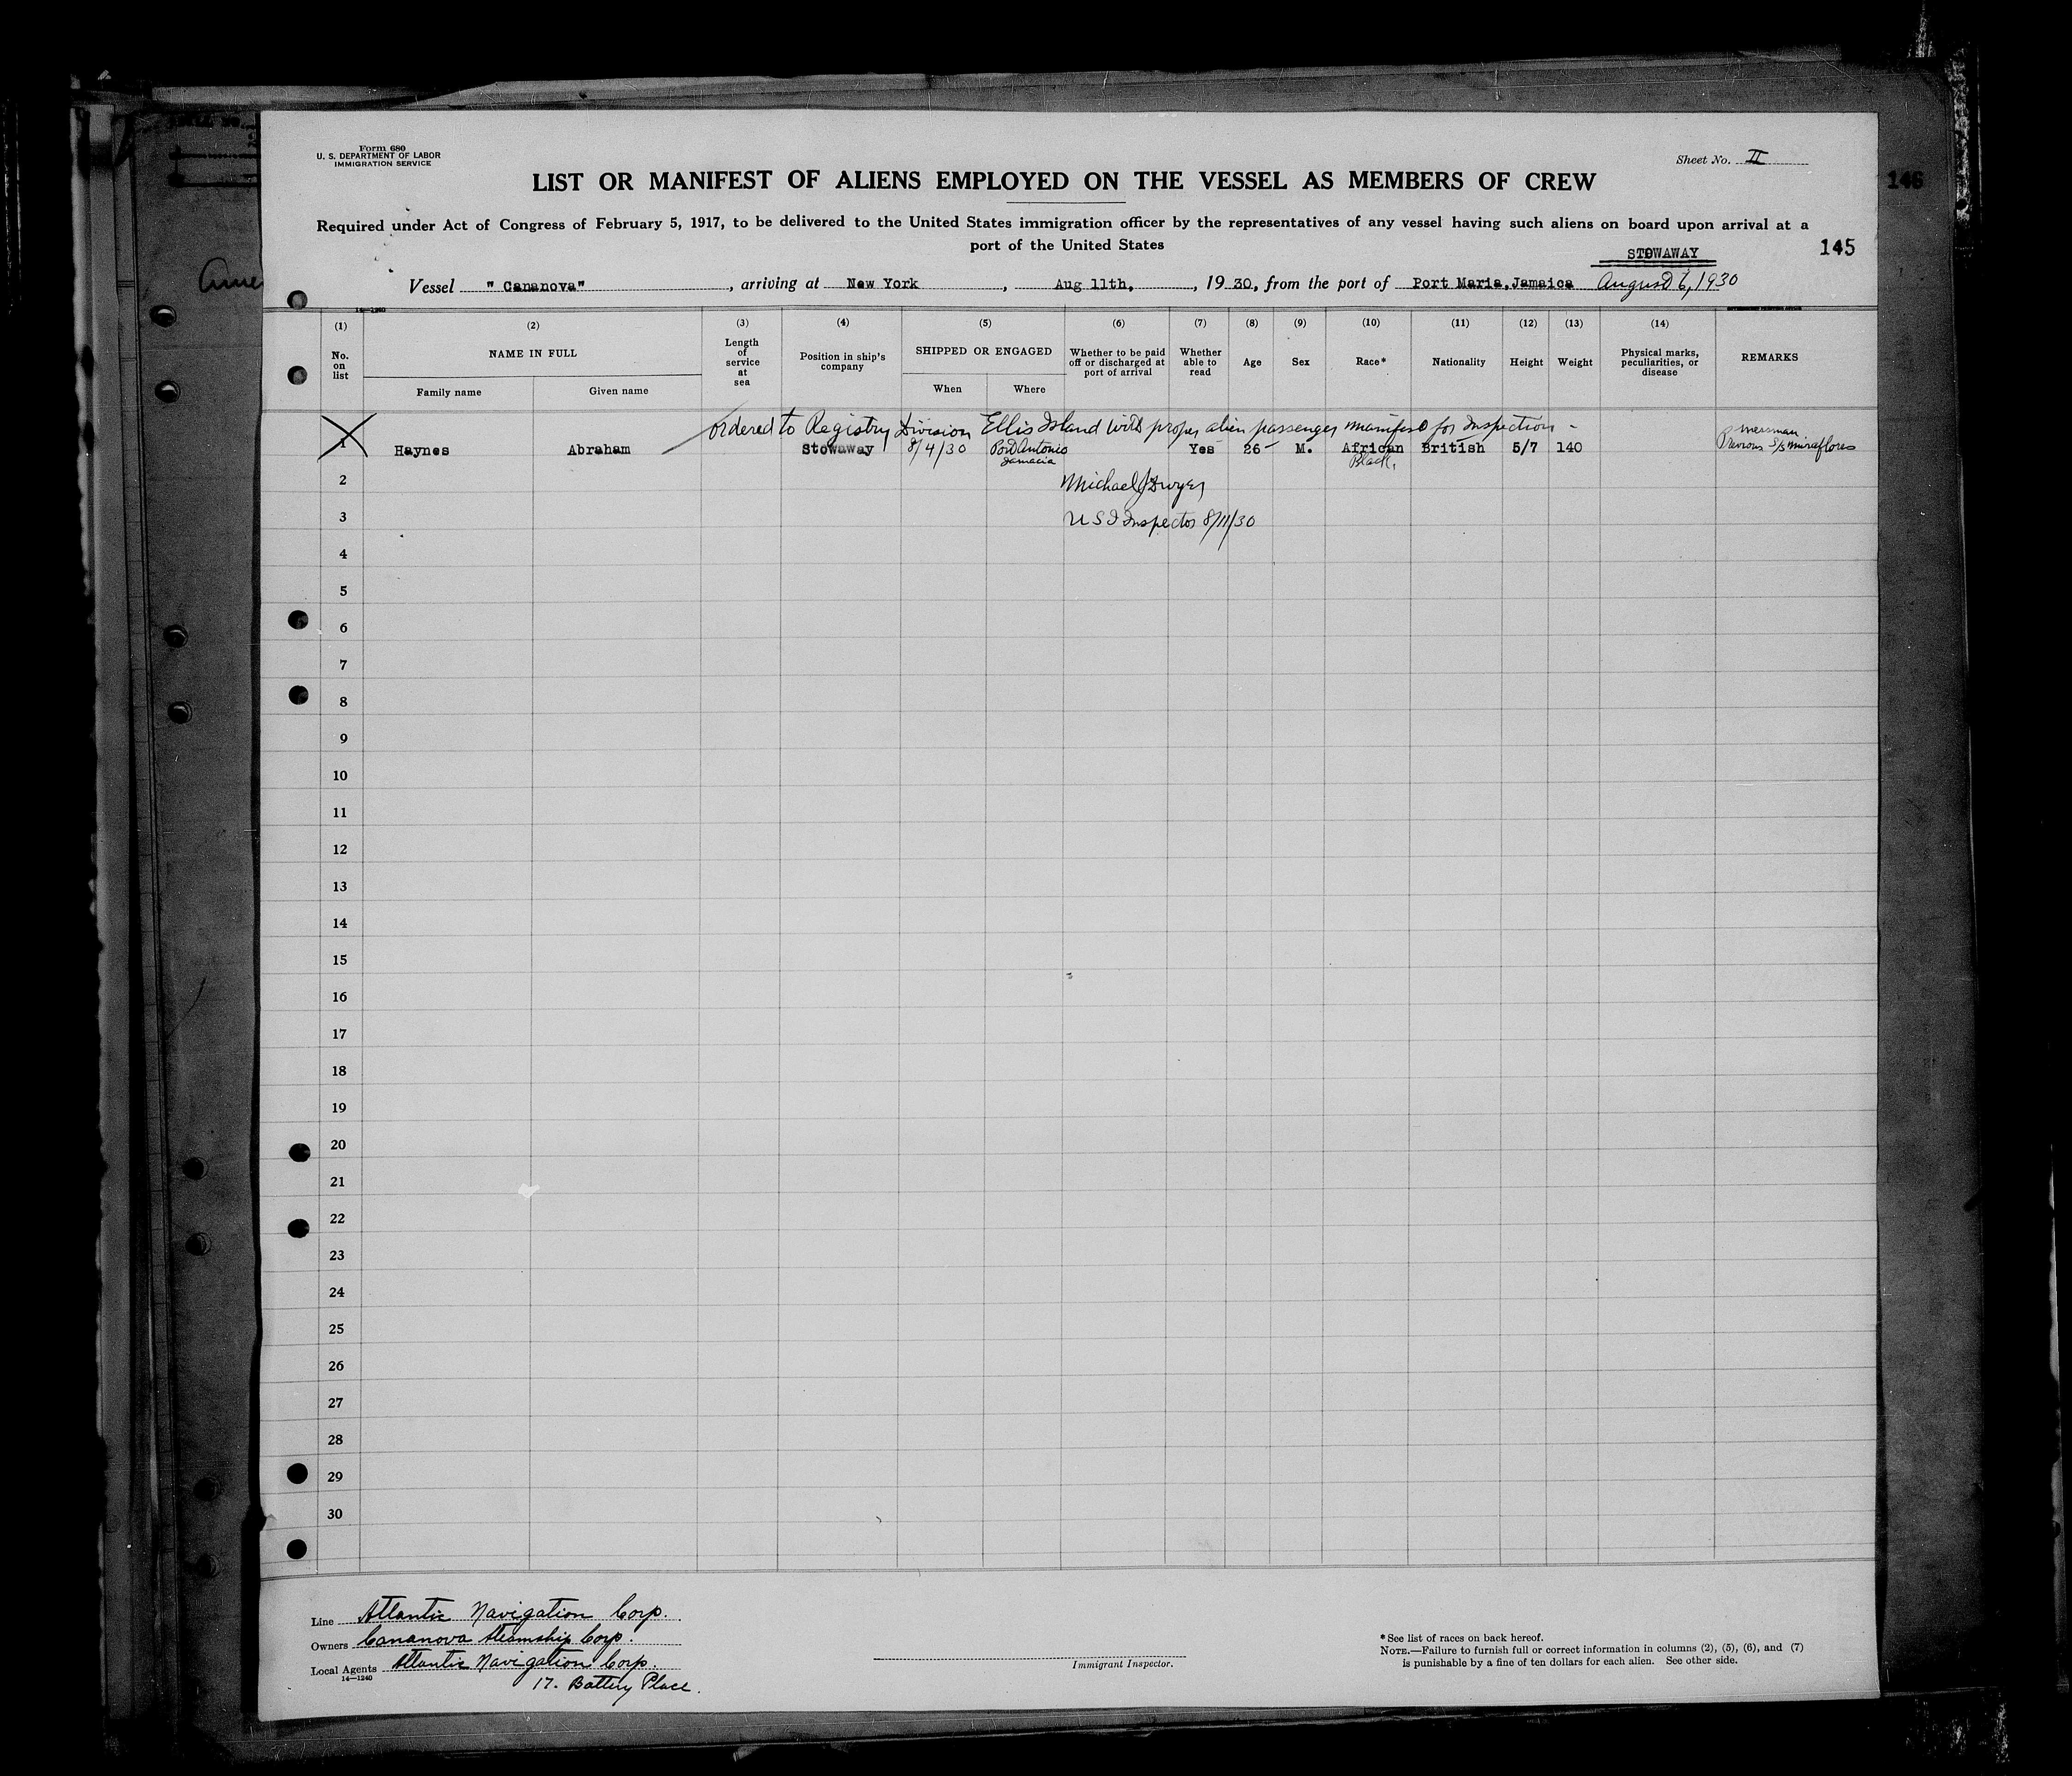 Form 680
U. S. DEPARTMENT OF LABOR
IMMIGRATION SERVICE
Sheet No. II
LIST OR MANIFEST OF ALIENS EMPLOYED ON THE VESSEL AS MEMBERS OF CREW
146
Required under Act of Congress of February 5, 1917, to be delivered to the United States immigration officer by the representatives of any vessel having such aliens on board upon arrival at a
port of the United States
STOWAWAY
145
Vessel "Cananova", arriving at New York, Aug 11th, 1930, from the port of Port Maria, Jamaica August 6, 1930
14—1240
(1) (2) (3) (4) (5) (6) (7) (8) (9) (10) (11) (12) (13) (14)
No. on list
NAME IN FULL
Family name
Given name
Length of service at sea
Position in ship's company
SHIPPED OR ENGAGED
When
Where
Whether to be paid off or discharged at port of arrival
Whether able to read
Age
Sex
Race*
Nationality
Height
Weight
Physical marks, peculiarities, or disease
REMARKS
Ordered to Registry Division Ellis Island with proper alien passenger manifest for Inspection -
1 Haynes Abraham Stowaway 8/4/30 Port Antonio Jamacia Yes 26 M. African Black, British 5/7 140 Messman Previous S/S Miraflores
2 Michael J Dwyer
3 U S I Inspector 8/11/30
4
5
6
7
8
9
10
11
12
13
14
15
16
17
18
19
20
21
22
23
24
25
26
27
28
29
30
Line Atlantic Navigation Corp.
Owners Cananova Steamship Corp.
Local Agents Atlantic Navigation Corp.
14—1240
17. Battery Place.
Immigrant Inspector.
* See list of races on back hereof.
NOTE.—Failure to furnish full or correct information in columns (2), (5), (6), and (7)
is punishable by a fine of ten dollars for each alien. See other side.